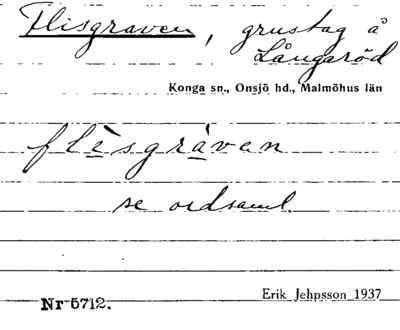 Flisgraven, grustag å
Långaröd
Konga sn., Onsjö hd., Malmöhus län
flìsgràven
se ordsaml.
Erik Jehpsson 1937
Nr 5712.